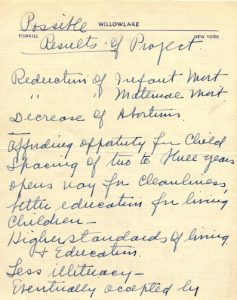 Possible
WILLOWLAKE
FISHKILL NEW YORK
Results of Project
Reduction of Infant Mort
" " Maternal Mort
Decrease of Abortions.
Affording opportuty for Child
Spacing of two to three years
opens way for cleanliness,
better education for living
Children –
Higher standards of living
+ Education.
Less illiteracy –
Eventually accepted by